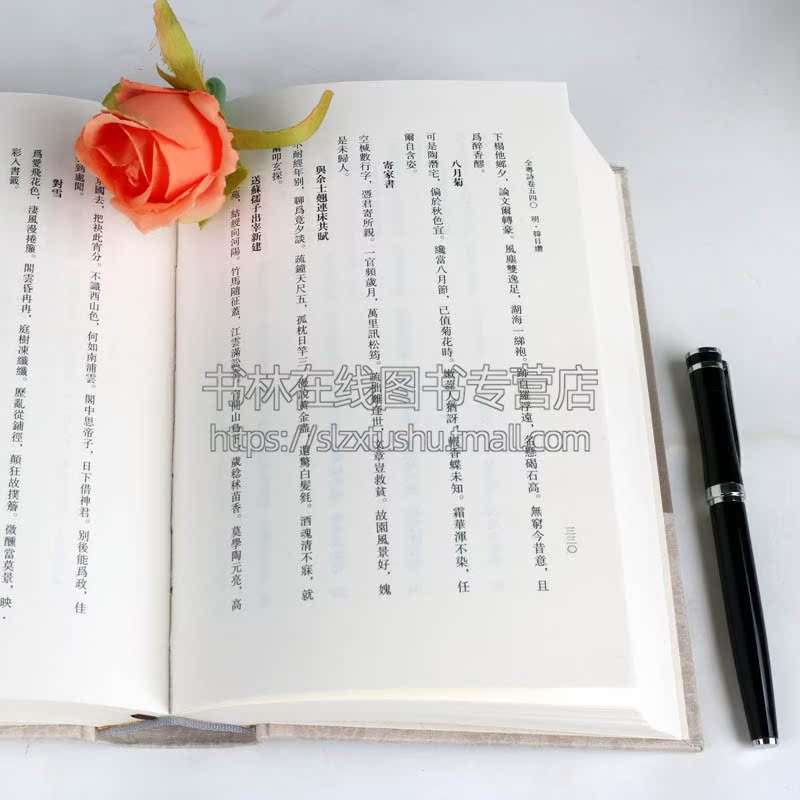 全粵詩卷五四〇 明·韓日纘
三三〇
下榻他鄉夕，論文爾轉豪。風塵雙逸足，湖海一綈袍。跡自羅浮遠，名懸碣石高。無窮今昔意，且
爲醉香醪。
八月菊
可是陶潛宅，偏於秋色宜。纔當八月節，已值菊花時。嫩蕊人猶訝，輕香蝶未知。霜華渾不染，任
爾自含姿。
寄家書
空械數行字，憑君寄所親。一官頻歲月，萬里訊松筠。疏拙難逢世，文章豈救貧。故園風景好，媿
是未歸人。
與余士翹連床共賦
不耐經年別，聊爲竟夕談。疏鐘天尺五，孤枕日竿三。漫說黃金盡，還驚白髮毿。酒魂清不寐，就
爾叩玄探。
送蘇儒子出宰新建
苑，結綬向河陽。竹馬隨征蓋，江雲滿
山鳥下，歲稔秫苗香。莫學陶元亮，高
國去，把袂此宵分。不識西山色，何如南浦雲。閣中思帝子，日下借神君。別後能爲政，佳
到處聞。
對雪
爲愛飛花色，淒風漫捲簾。閣雲昏冉冉，庭樹凍纖纖。歷亂從鋪徑，顛狂故撲簷。微醺當莫景，映
彩入書籤。
书林在线图书专营店
https://slzxtushu.tmall.com